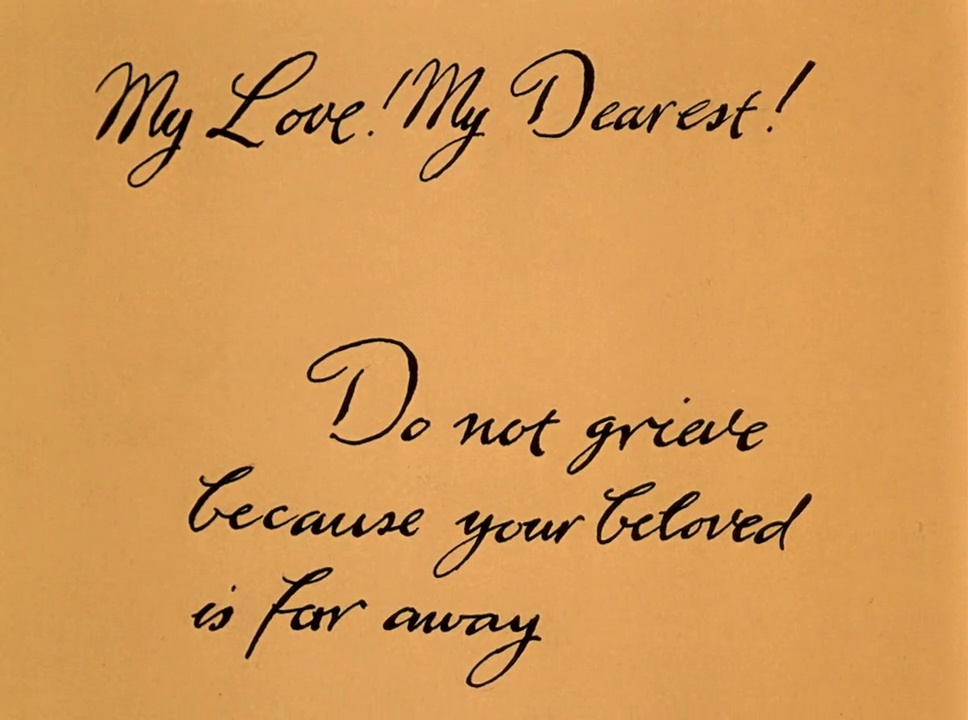 My Love! My Dearest!
Do not grieve
because your beloved
is far away